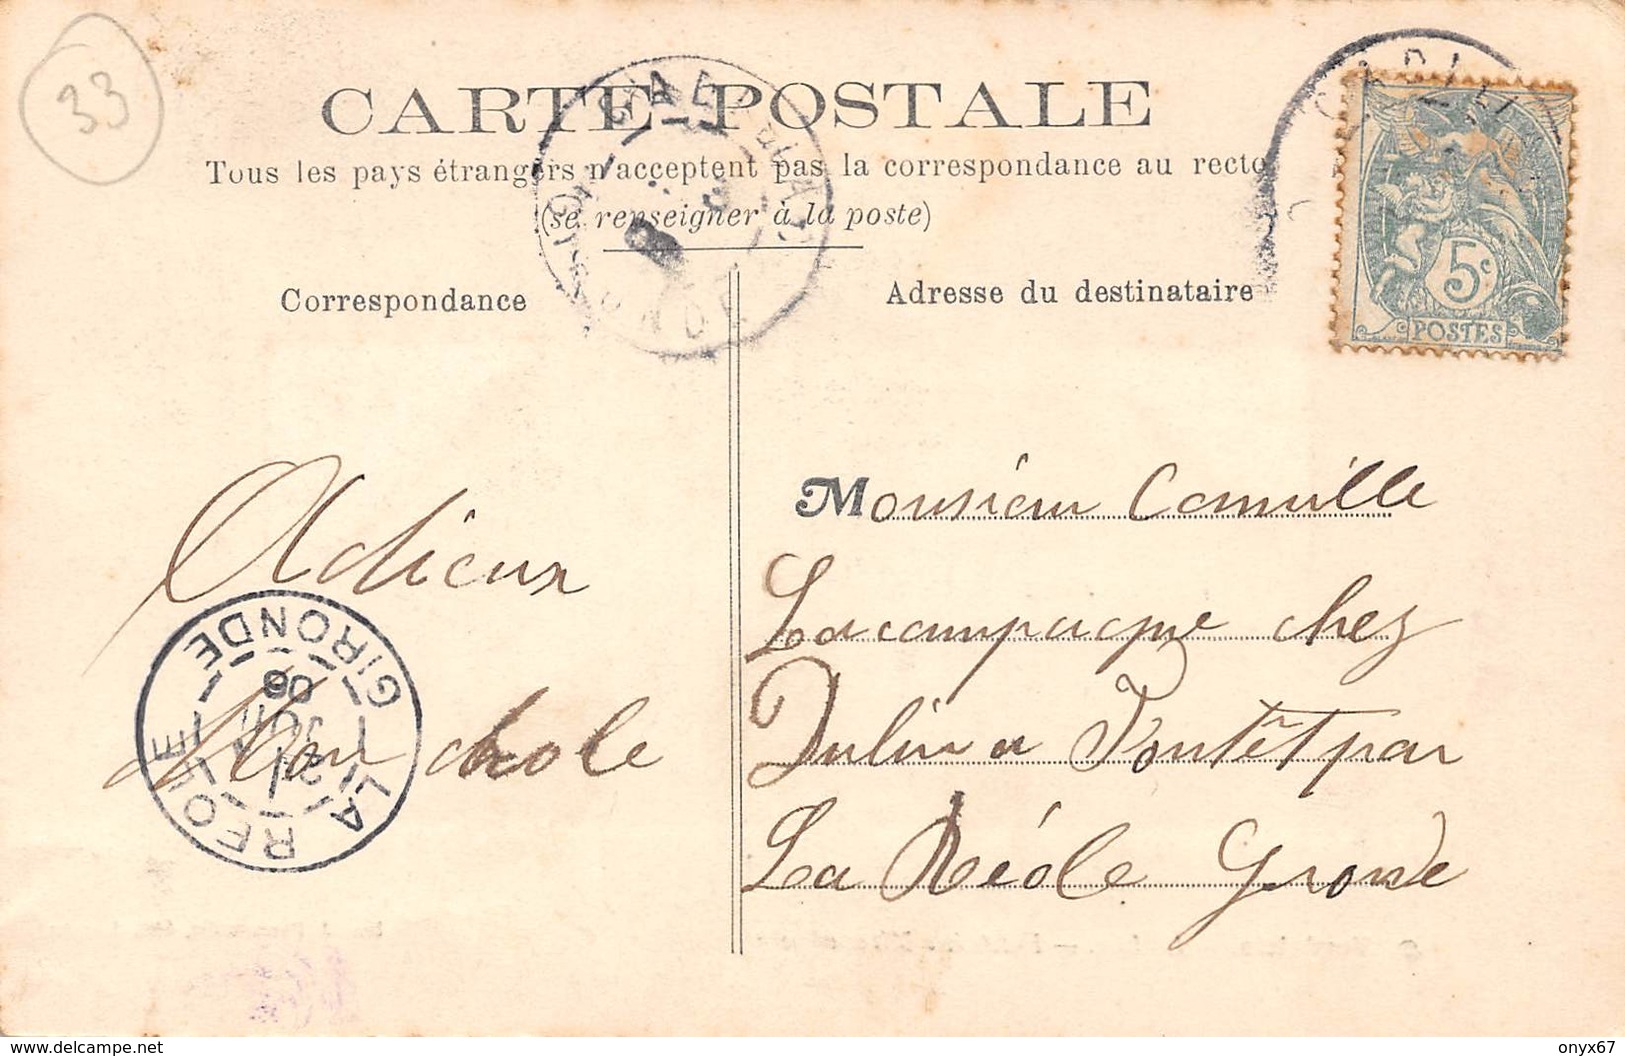 33
CARTE POSTALE
Tous les pays étrangers n'acceptent pas la correspondance au recto
(se renseigner à la poste)
Correspondance
Adresse du destinataire
5c
POSTES
GIRONDE
Adieux
Mon
LA REOLE
GIRONDE
JUIN
06
Monsieur Camille
Lacampagne chez
Dulin a
La Réole Gironde
www.delcampe.net
onyx67